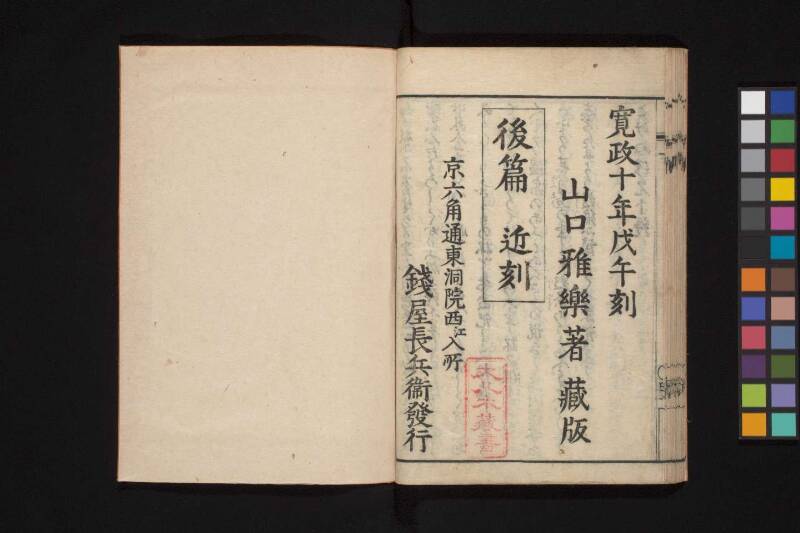 寛政十年戊午刻
山口雅樂著藏版
後篇 近刻
京六角通東洞院西江入所
錢屋長兵衞發行